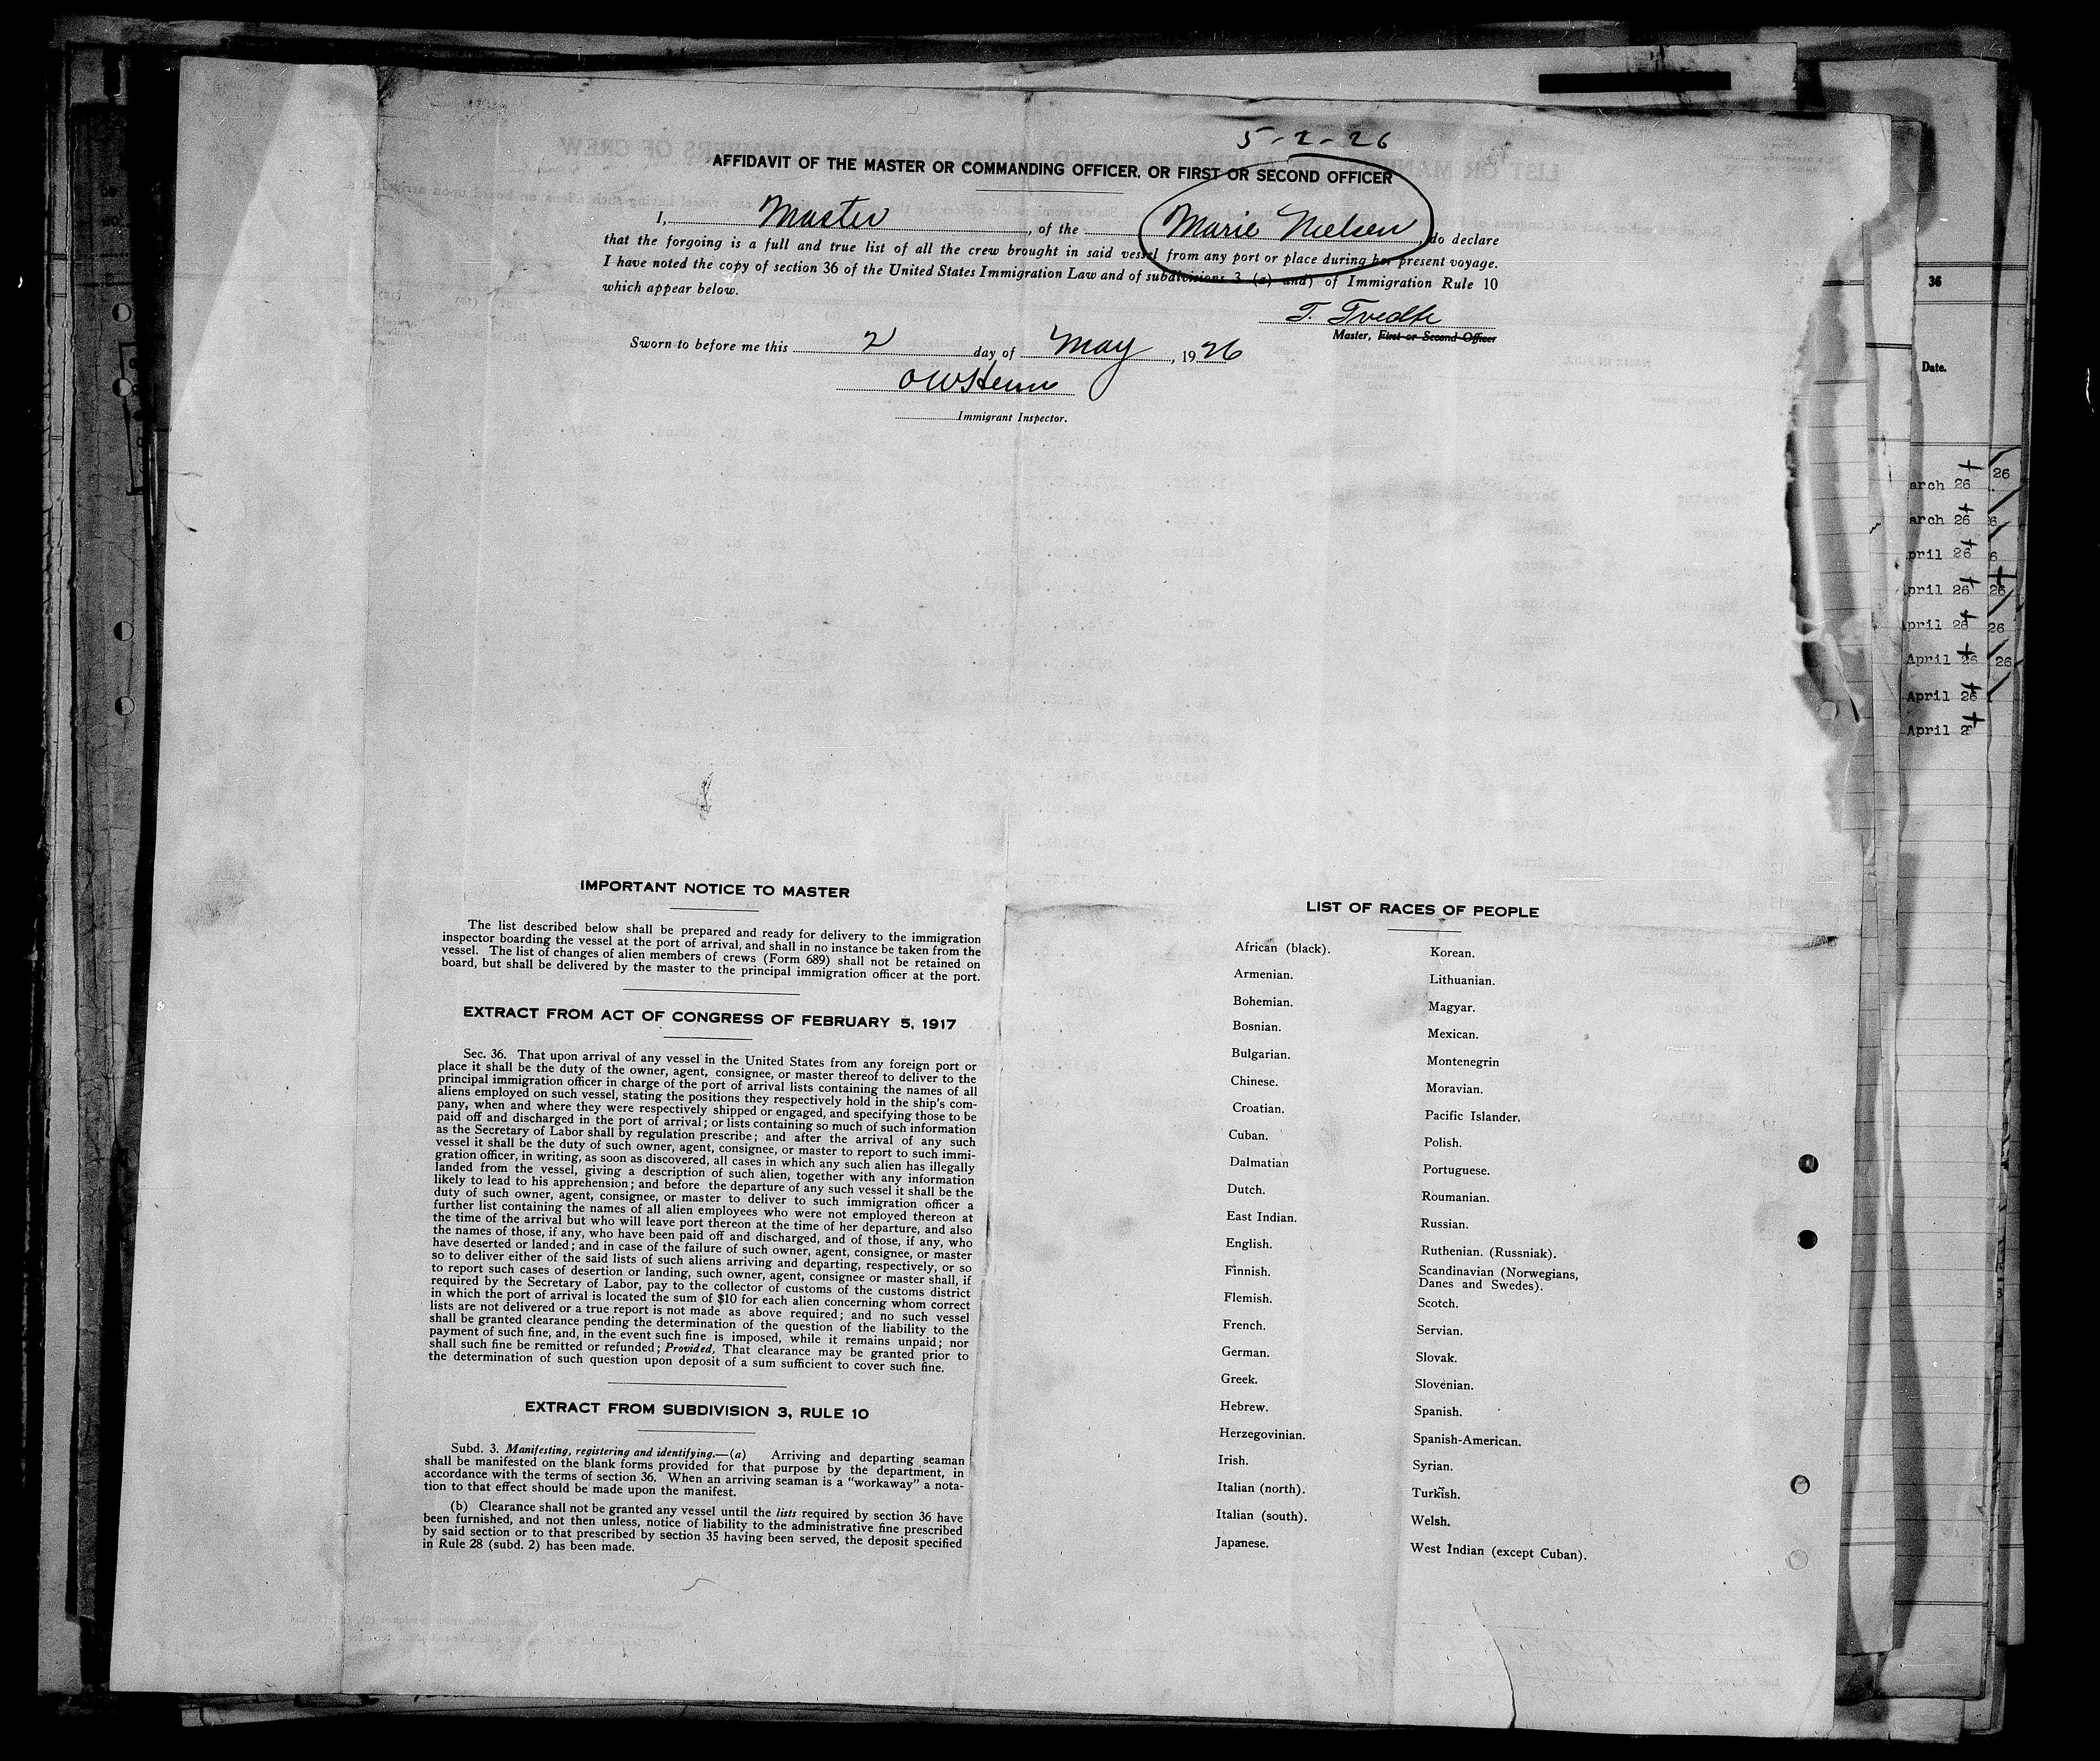 5-2-26
AFFIDAVIT OF THE MASTER OR COMMANDING OFFICER, OR FIRST OR SECOND OFFICER
I, Master, of the Marie Nielsen, do declare
that the forgoing is a full and true list of all the crew brought in said vessel from any port or place during her present voyage.
I have noted the copy of section 36 of the United States Immigration Law and of subdivisions 3 (a) and) of Immigration Rule 10
which appear below.
T. Tvedte
Master, First or Second Officer
Sworn to before me this 2 day of May, 1926
Immigrant Inspector.
IMPORTANT NOTICE TO MASTER
The list described below shall be prepared and ready for delivery to the immigration
inspector boarding the vessel at the port of arrival, and shall in no instance be taken from the
vessel. The list of changes of alien members of crews (Form 689) shall not be retained on
board, but shall be delivered by the master to the principal immigration officer at the port.
EXTRACT FROM ACT OF CONGRESS OF FEBRUARY 5, 1917
Sec. 36. That upon arrival of any vessel in the United States from any foreign port or
place it shall be the duty of the owner, agent, consignee, or master thereof to deliver to the
principal immigration officer in charge of the port of arrival lists containing the names of all
aliens employed on such vessel, stating the positions they respectively hold in the ship's com-
pany, when and where they were respectively shipped or engaged, and specifying those to be
paid off and discharged in the port of arrival; or lists containing so much of such information
as the Secretary of Labor shall by regulation prescribe; and after the arrival of any such
vessel it shall be the duty of such owner, agent, consignee, or master to report to such immi-
gration officer, in writing, as soon as discovered, all cases in which any such alien has illegally
landed from the vessel, giving a description of such alien, together with any information
likely to lead to his apprehension; and before the departure of any such vessel it shall be the
duty of such owner, agent, consignee, or master to deliver to such immigration officer a
further list containing the names of all alien employees who were not employed thereon at
the time of the arrival but who will leave port thereon at the time of her departure, and also
the names of those, if any, who have been paid off and discharged, and of those, if any, who
have deserted or landed; and in case of the failure of such owner, agent, consignee, or master
so to deliver either of the said lists of such aliens arriving and departing, respectively, or so
to report such cases of desertion or landing, such owner, agent, consignee or master shall, if
required by the Secretary of Labor, pay to the collector of customs of the customs district
in which the port of arrival is located the sum of $10 for each alien concerning whom correct
lists are not delivered or a true report is not made as above required; and no such vessel
shall be granted clearance pending the determination of the question of the liability to the
payment of such fine, and, in the event such fine is imposed, while it remains unpaid; nor
shall such fine be remitted or refunded; Provided, That clearance may be granted prior to
the determination of such question upon deposit of a sum sufficient to cover such fine.
EXTRACT FROM SUBDIVISION 3, RULE 10
Subd. 3. Manifesting, registering and identifying.—(a) Arriving and departing seaman
shall be manifested on the blank forms provided for that purpose by the department, in
accordance with the terms of section 36. When an arriving seaman is a "workaway" a nota-
tion to that effect should be made upon the manifest.
(b) Clearance shall not be granted any vessel until the lists required by section 36 have
been furnished, and not then unless, notice of liability to the administrative fine prescribed
by said section or to that prescribed by section 35 having been served, the deposit specified
in Rule 28 (subd. 2) has been made.
LIST OF RACES OF PEOPLE
African (black).
Armenian.
Bohemian.
Bosnian.
Bulgarian.
Chinese.
Croatian.
Cuban.
Dalmatian
Dutch.
East Indian.
English.
Finnish.
Flemish.
French.
German.
Greek.
Hebrew.
Herzegovinian.
Irish.
Italian (north).
Italian (south).
Japanese.
Korean.
Lithuanian.
Magyar.
Mexican.
Montenegrin
Moravian.
Pacific Islander.
Polish.
Portuguese.
Roumanian.
Russian.
Ruthenian. (Russniak).
Scandinavian (Norwegians,
Danes and Swedes).
Scotch.
Servian.
Slovak.
Slovenian.
Spanish.
Spanish-American.
Syrian.
Turkish.
Welsh.
West Indian (except Cuban).
36
Date.
arch 26 26
arch 26 6
pril 26 6
pril 26 26
pril 26 26
April 26 26
April 26
April 2